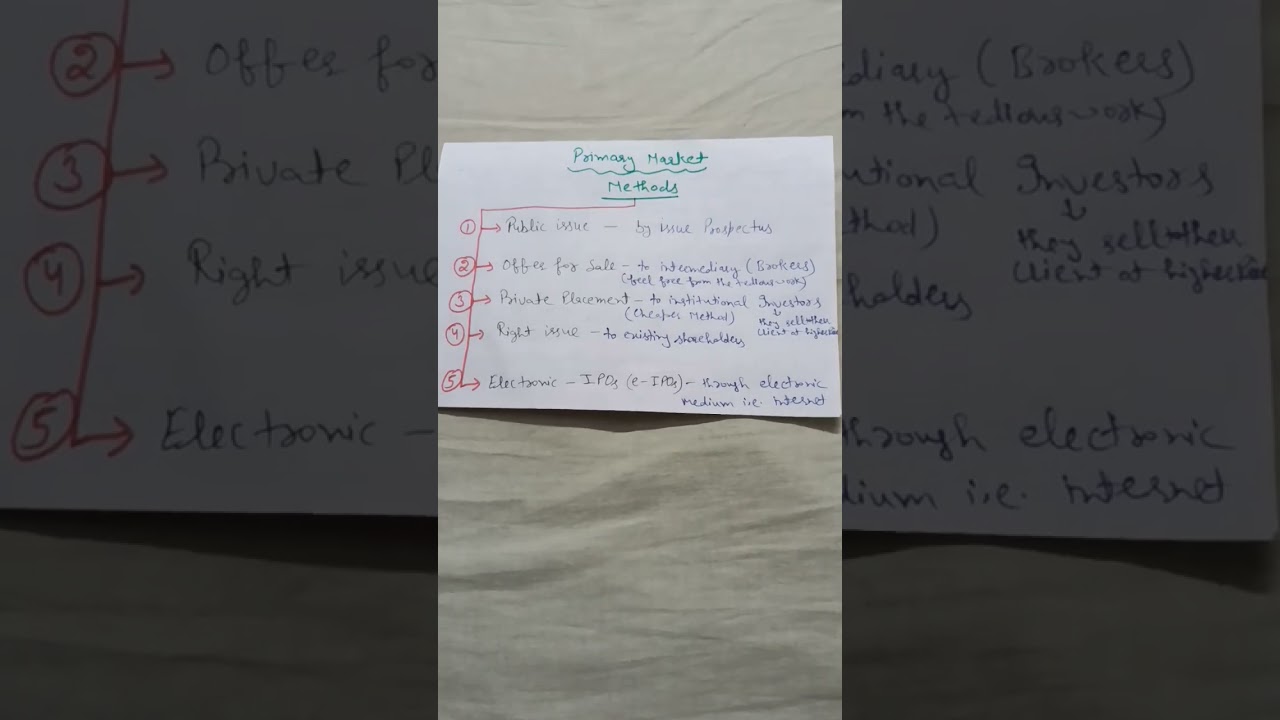 Primary Market
Methods
① → Public issue — by issue Prospectus
② → Offer for Sale - to intermediary (Brokers)
(feel free from the tedious work)
③ → Private Placement - to institutional Investors
(Cheaper Method) ↓ they sell their
client at higher
④ → Right issue - to existing shareholders
⑤ → Electronic - IPOs (e-IPOs) - through electronic
medium i.e. internet